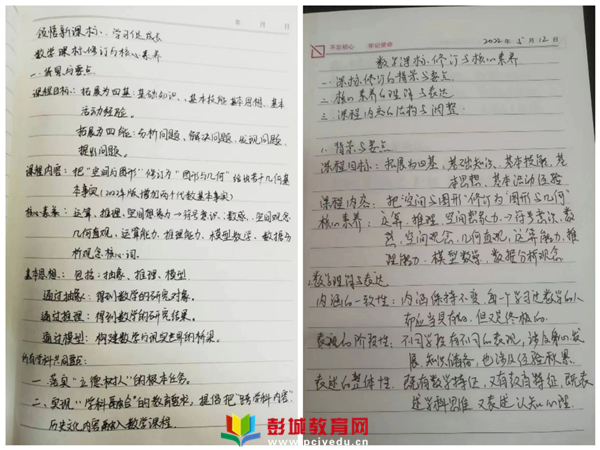 年 月 日
领悟新课标,学习促成长
数学课标修订与核心素养
一、背景与要点
课程目标:拓展为四基:基础知识、基本技能、基本思想、基本
活动经验。
拓展为四能:分析问题、解决问题、发现问题、
提出问题。
课程内容:把“空间与图形”修订为“图形与几何”给出若干几何基
本事实(2022年版增加两个代数基本事实)
核心素养:运算、推理、空间想象力→符号意识、数感、空间观念
几何直观、运算能力、推理能力、模型数学、数据分
析观念核心词。
基本思想:包括:抽象、推理、模型
通过抽象:得到数学的研究对象。
通过推理:得到数学的研究结果。
通过模型:构建数学与现实世界的桥梁。
所有学科共同要求:
一、落实“立德树人”的根本任务。
二、实现“学科融合”的教育要求,提倡把“跨学科内容”
历史文化内容融入数学课程。
不忘初心 牢记使命
2022年5月12日
数学课标修订与核心素养
一、课标修订的背景与要点
二、核心素养的理解与表达
三、课程内容的结构与调整
一、背景与要点
课程目标:拓展为四基,基础知识、基本技能、基
本思想、基本活动经验
课程内容:把“空间与图形”修订为“图形与几何”
核心素养:运算、推理、空间想象力→符号意识、数
感、空间观念、几何直观、运算能力、推
理能力、模型数学、数据分析观念
2.数学理解与表达
内涵的一致性:内涵保持不变,每个学习过数学的人
都应当具有的,但又是终极的.
表现的阶段性:不同学段有不同的表现,涉及身心发
展、知识储备,也涉及经验积累.
表述的整体性:既有数学特征,又有教育特征,既表
述学科思维 又表述认知心理.
彭城教育网
www.pcjyedu.cn